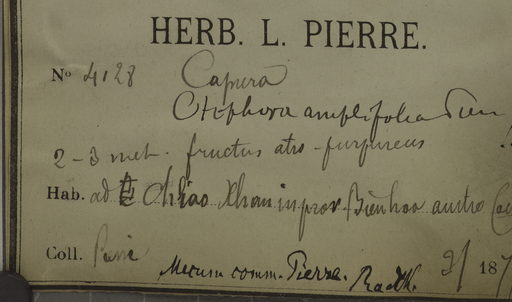 HERB. L. PIERRE.
No 4128 Capura
Otophora amplifolia Pierre
2-3 met. fructus atro-purpureus
Hab. ad Chiao Xhan in prov. Bien hoa austro
Coll. Pierre
Mecum comm. Pierre. Radlk. 2/ 187